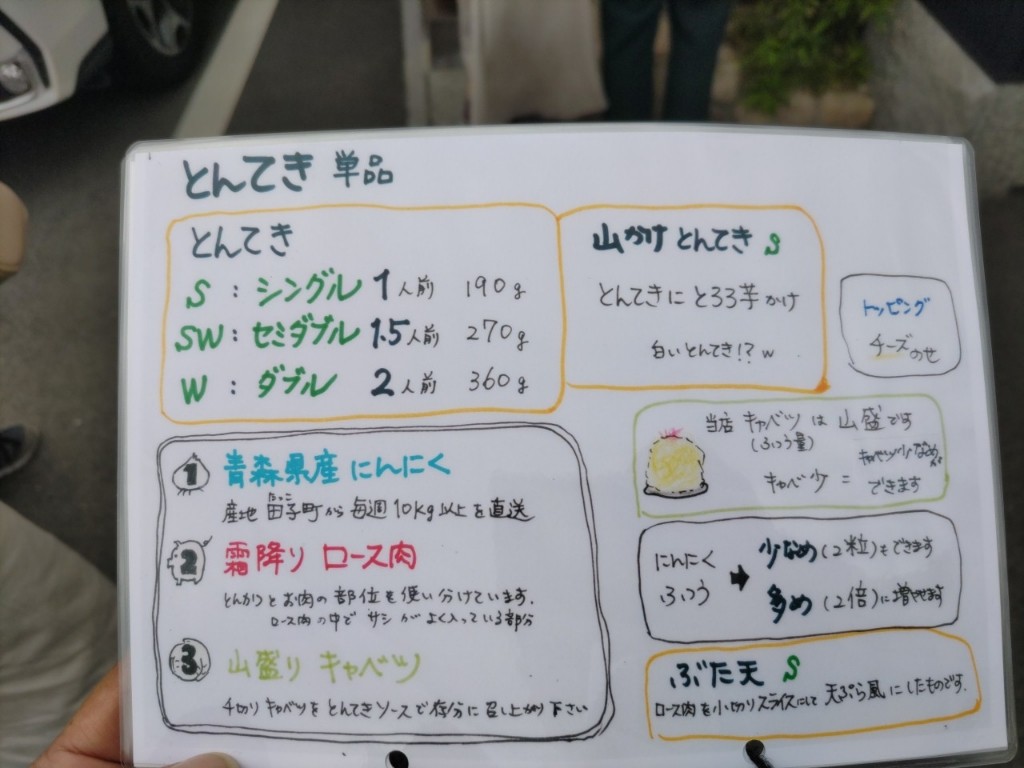 とんてき 単品
とんてき
S : シングル 1人前 190g
SW : セミダブル 1.5人前 270g
W : ダブル 2人前 360g
山かけ とんてき S
とんてきに とろろ芋かけ
白いとんてき!? w
トッピング
チーズのせ
当店 キャベツ は 山盛です
(ふつう量)
キャベ少 = キャベツ少なめが
できます
1 青森県産 にんにく
たっこ
産地 田子町から 毎週10kg以上を直送
2 霜降り ロース肉
とんかつとお肉の部位を使い分けています。
ロース肉の中で サシがよく入っている部分
3 山盛り キャベツ
千切り キャベツを とんてきソースで存分に 召し上がり下さい
にんにく
ふつう
➡ 少なめ(2粒)もできます
多め(2倍)に増やせます
ぶた天 S
ロース肉を小切りスライスにして 天ぷら風にしたものです。